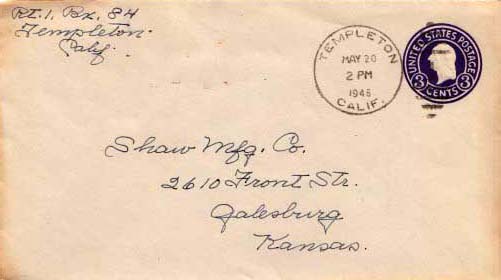 Rt. 1. Bx. 84
Templeton.
Calif.
TEMPLETON
MAY 20
2 PM
1946
CALIF.
UNITED STATES POSTAGE
3 CENTS 3
Shaw Mfg. Co.
2610 Front Str.
Galesburg
Kansas.